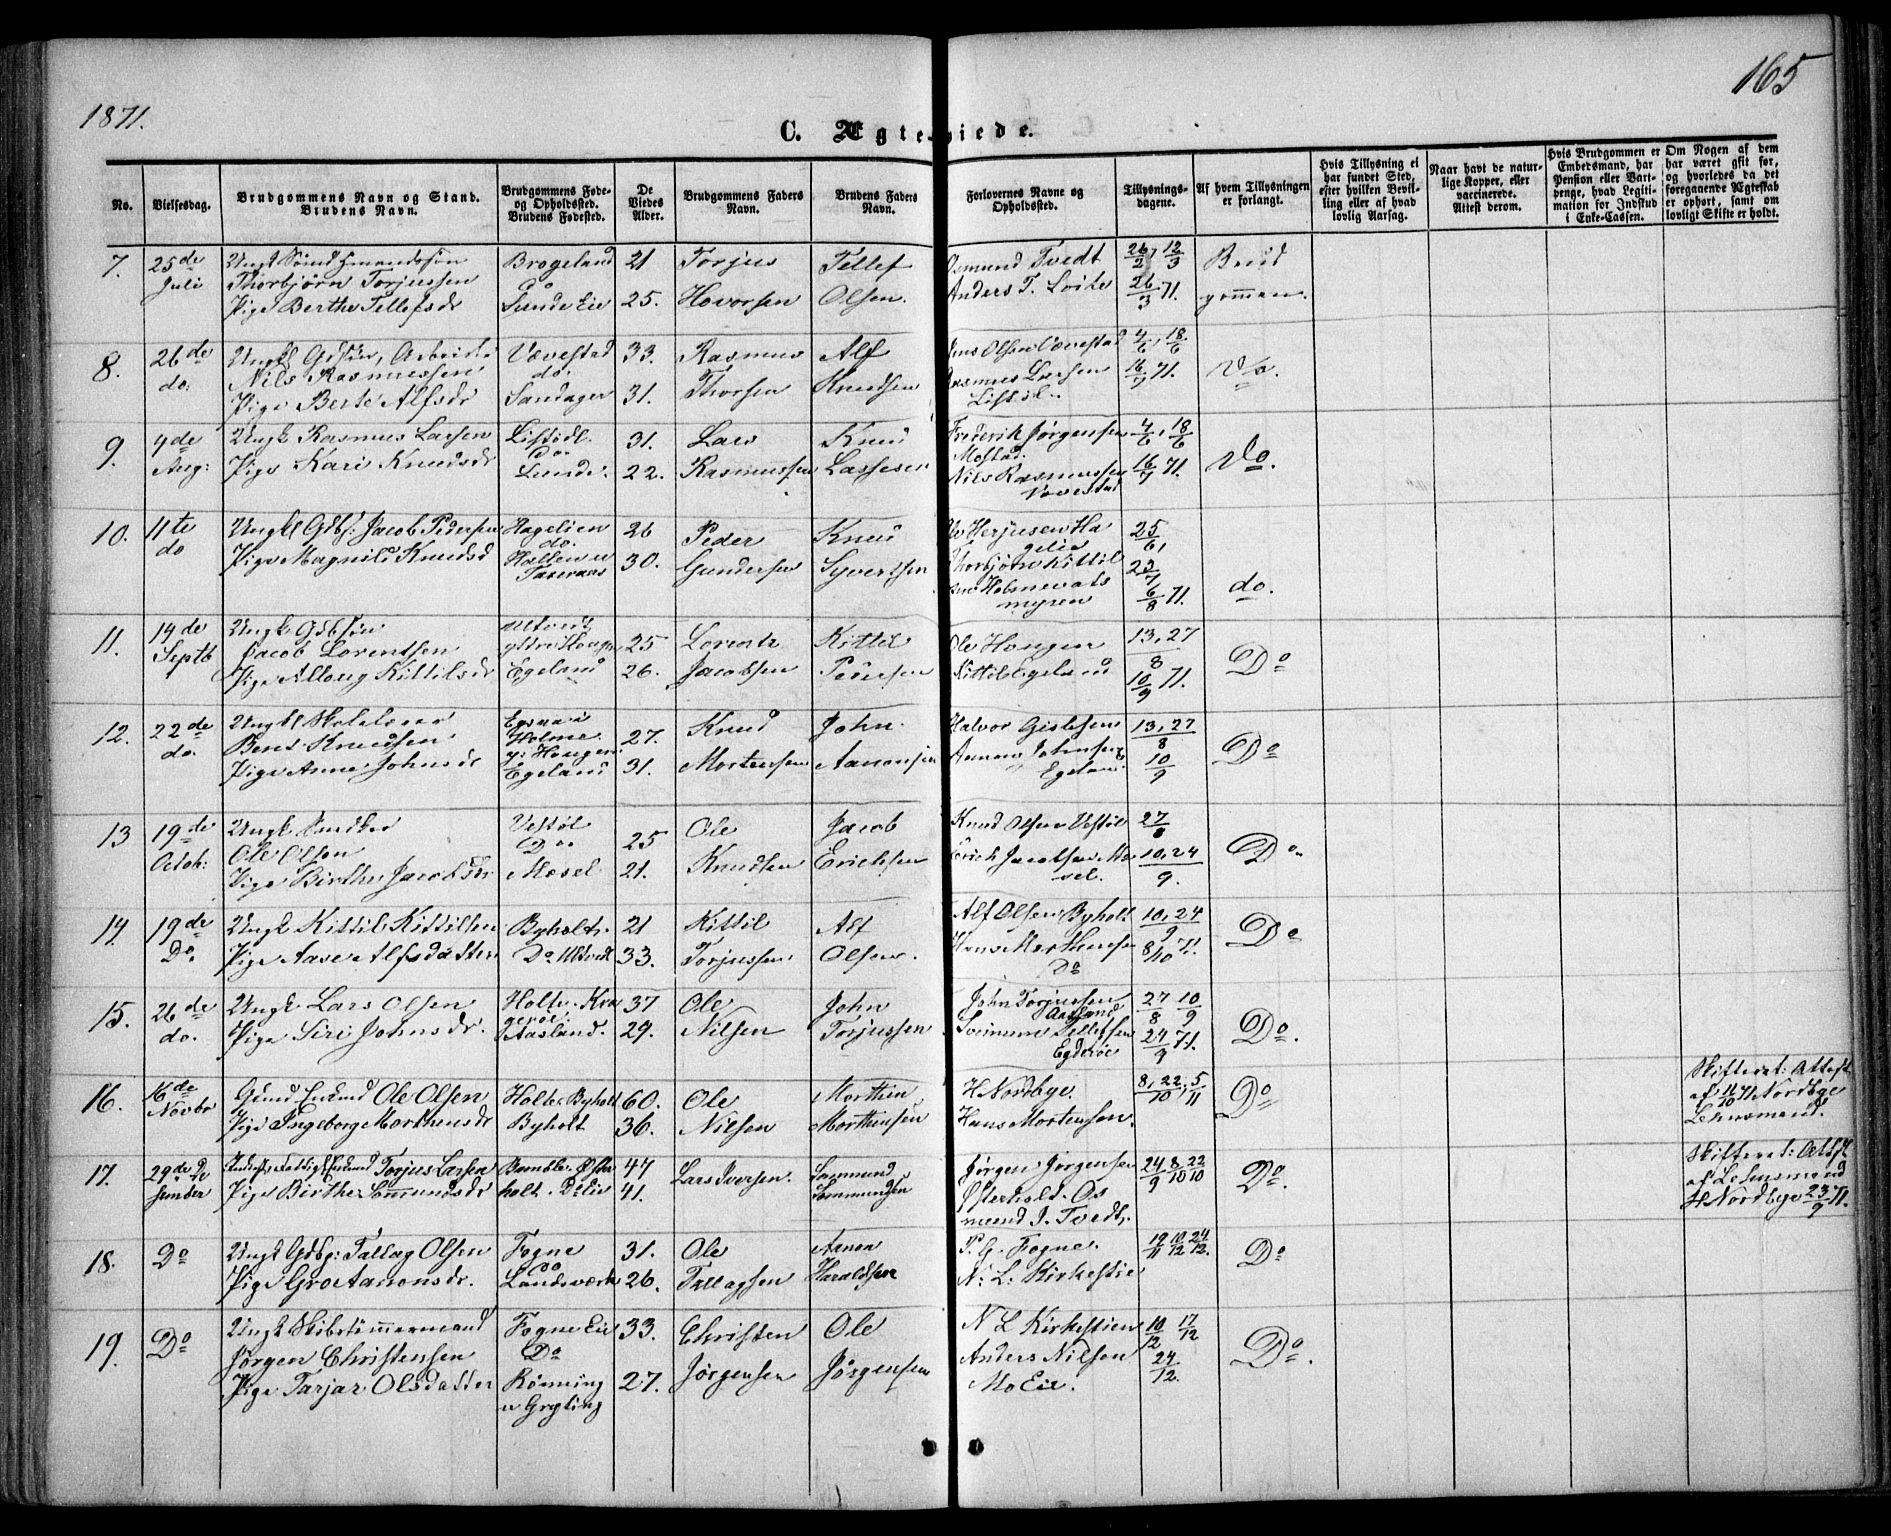 1871.
165
C. Ægteviede.
No.
Vielsesdag.
Brudgommens Navn og Stand.
Brudens Navn.
Brudgommens Føde-
og Opholdssted.
Brudens Fødested.
De
Viedes
Alder.
Brudgommens Faders
Navn.
Brudens Faders
Navn.
Forlovernes Navne og
Opholdssted.
Tillysnings-
dagene.
Af hvem Tillysningen
er forlangt.
Hvis Tillysning ei
har fundet Sted,
efter hvilken Bevil-
ling eller af hvad
lovlig Aarsag.
Naar havt de natur-
lige Kopper, eller
vaccinerede.
Attest derom.
Hvis Brudgommen er
Embedsmand, har
Pension eller Vart-
penge, hvad Legiti-
mation for Indskud
i Enke-Cassen.
Om Nogen af dem
har været gift før,
og hvorledes da det
foregaaende Ægteskab
er ophørt, samt om
lovligt Skifte er holdt.
7. 25de Juli
Thorbjörn Torjussen
Pige Berthe Tellefsdr
Brogeland
do
Sunde Eie
21
25.
Torjus
Hovorsen
Tellef
Olsen.
Osmund Tvedt
Anders T. Loite
26/2, 12/3
26/3 71.
Brud
gommen.
8. 26de do.
Nils Rasmussen
Pige Berte Alfsdr
Vævestad
do.
Sandager
33.
31.
Rasmus
Thorsen
Alf
Knudsen
Jens Olsen Vævestad
Rasmus Larsen
4/6, 18/6
16/7 71.
Do.
9. 4de Aug:
Ungk Rasmus Larsen
Pige Kari Knudsdr
Listödl.
Do.
Lunde.
31.
22.
Lars
Rasmussen
Knud
Lassesen
Frederik Jörgensen
Mostad.
Nils Rasmussen
Vovestad
4/6, 18/6
16/7 71.
Do.
10. 11te do
Ungkl Gdbj: Jacob Pedersen
Pige Magnild Knudsd
Hagelien
do.
26
30.
Peder
Gundersen
Knud
Syvertsen
Ole Herjusen Ha
gelie
Thorbjörn Kittil
sen Holmevats
myren
25/6,
23/7
6/8 71.
do.
11. 14de Septb
Ungk Gdbsön
Jacob Lorentsen
Pige Alborg Kittilsdr
Egeland
25
26.
Lorents
Jacobsen
Kittel
Pedersen
Ole Hougen
Kittil Egeland
13, 27/8
10/9 71.
Do
12. 22de do.
Ungkl Skolelærer
Bent Knudsen
Pige Anne Johnsdr
Holme
Egeland
27.
31.
Knud
Mortensen
John.
Aanonsen
Halvor Gislesen
Aanon Johnsen
Egeland
13, 27/8
10/9
Do
13 19de Octob:
Ole Olsen
Pige Birthe Jacobsdr
Vestöl
Do
Mæsel
25
21.
Ole
Knudsen
Jacob
Ericksen
Knud Olsen Vestöl
Erich Jacobsen Mæ
sel.
27/8
10, 24/9.
Do.
14. 19de Do.
Ungk Kittil Kittilsen
Pige Aase Alfsdatter
Byholt.
21
33.
Kittil
Torjussen
Alf
Olsen.
Alf Olsen Byholt
Hans Morthensen
Do
10, 24/9
8/10 71.
Do
15. 26de do.
Ungk Lars Olsen
Pige Siri Johnsdr.
Holte. Kra
gerøe.
Aasland.
37
29.
Ole
Nilsen
John
Torjussen
John Torjussen
Aasland
Tellefsen
Egderöe
27/8 10/9
24/9 71.
Do.
16. 16de Novbr
Ole Olsen
Pige Ingeborg Morthensdr
Holte. Byholt
Byholt
60.
36.
Ole
Nilsen
Morthen
Morthensen
H Nordbye.
Hans Mortensen.
8, 22/10, 5/11
Do
Skifteret: Attest
af 11/10 71 Nordbye
Lensmand.
17. 29de De
sember
Torjus Larsen
Pige Birthe Sommundsdr
Bamble. Øster
holt. Do Eie
47
41.
Lars Iversen.
Sommund
Sommundsen
Jörgen Jörgensen
Østerholt. Os
mund J. Tvedt.
24/9 8/10 22/10
Do.
Skifteret: Attst
af Lensmand
H Nordbye 23/9 71.
18. Do
Ungk Gdbg: Tallag Olsen
Pige Gro Aanonsdr.
Fogne
do
Landsværk
31.
26.
Ole
Tallagsen
Aanon
Haraldsen
P. G. Fogne.
N: L: Kirkestie
19/11 10/12 24/12.
Do
19. Do
Ungk Skibstömmermand
Jörgen Christensen
Pige Tarjar Olsdatter
Fogne Eie
Do
Rönning
u Gryting
33.
27.
Christen
Jörgensen
Ole
Jörgensen
N L Kirkestien
Anders Nilsen
Mo Eie.
10/12 17/12
24/12.
Do.